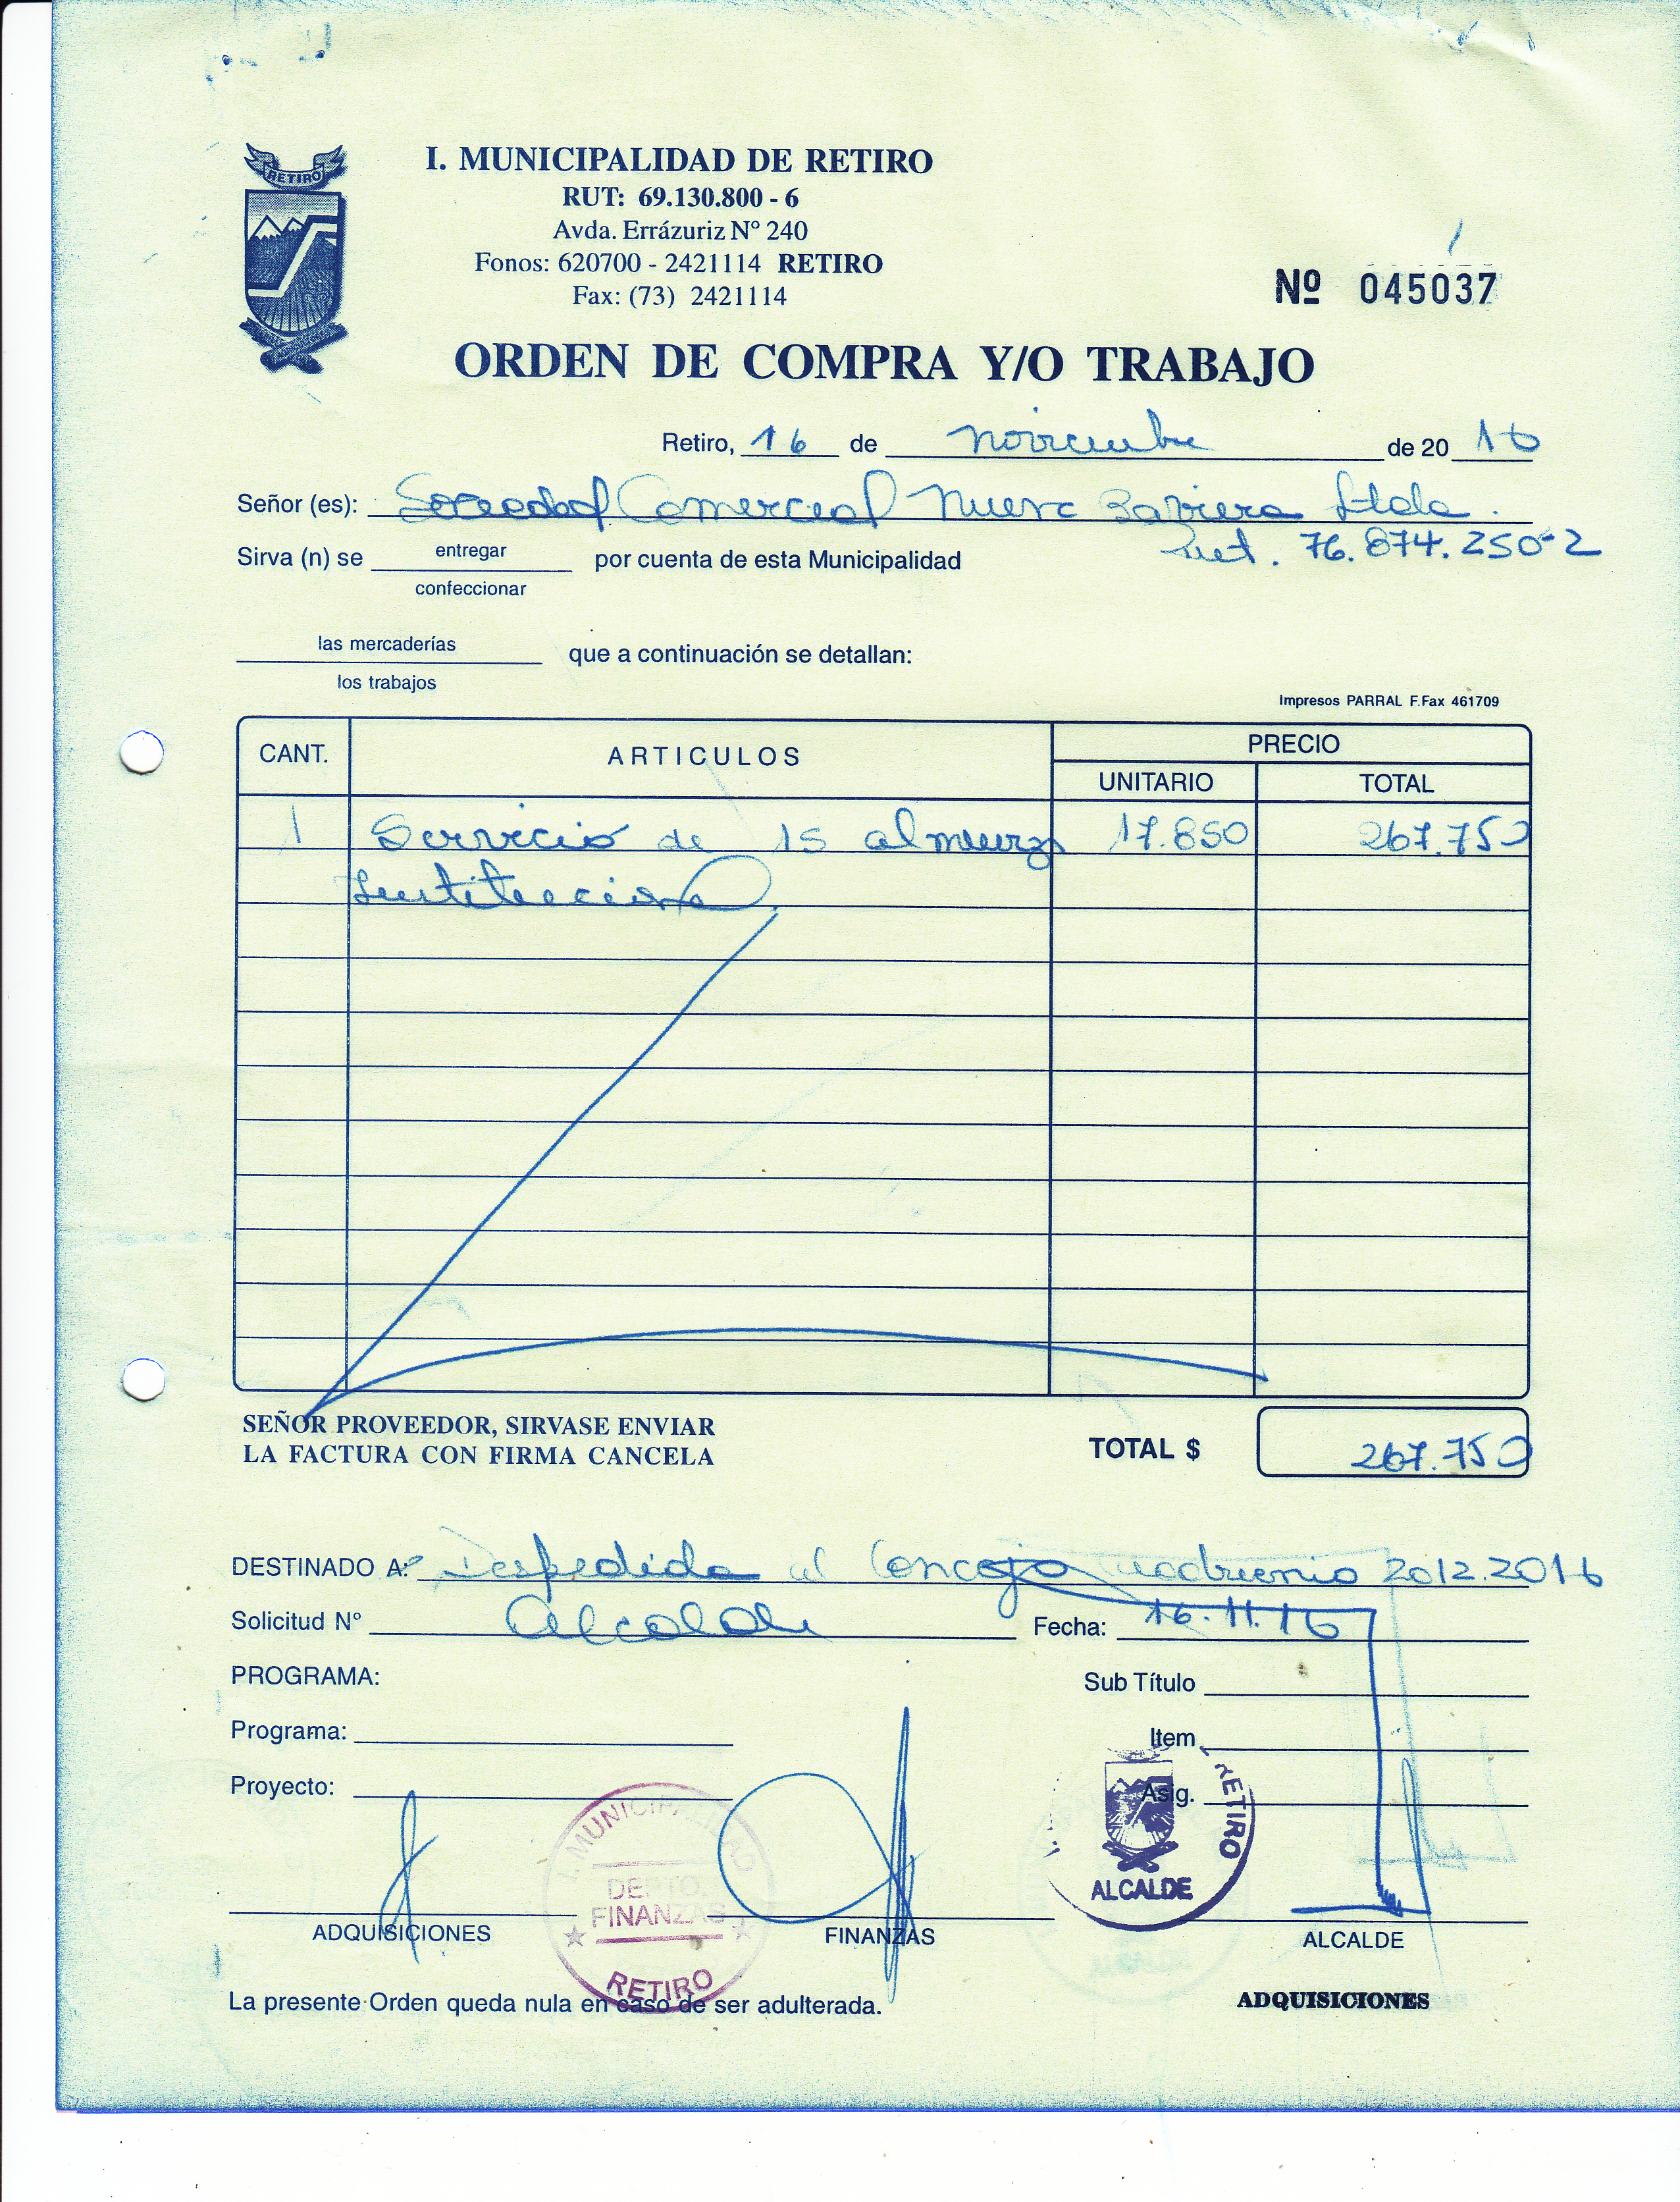 RETIRO
I. MUNICIPALIDAD DE RETIRO
RUT: 69.130.800 - 6
Avda. Errázuriz Nº 240
Fonos: 620700 - 2421114 RETIRO
Fax: (73) 2421114
Nº 045037
ORDEN DE COMPRA Y/O TRABAJO
Retiro, 16 de noviembre de 20 16
Señor (es): Sociedad Comercial Nueva Baviera Ltda.
Rut. 76.874.250-2
Sirva (n) se entregar por cuenta de esta Municipalidad
confeccionar
las mercaderías que a continuación se detallan:
los trabajos
Impresos PARRAL F.Fax 461709
CANT. ARTICULOS PRECIO
UNITARIO TOTAL
1 Servicio de 15 almuerzo 17.850 267.750
Institucional
SEÑOR PROVEEDOR, SIRVASE ENVIAR
LA FACTURA CON FIRMA CANCELA
TOTAL $ 267.750
DESTINADO A: Despedida al Concejo cuadrienio 2012.2016
Solicitud Nº Alcalde Fecha: 16.11.16
PROGRAMA: Sub Título
Programa: Item
Proyecto: Asig.
I. MUNICIPALIDAD
DEPTO.
FINANZAS
RETIRO
RETIRO
ALCALDE
ADQUISICIONES FINANZAS ALCALDE
La presente Orden queda nula en caso de ser adulterada. ADQUISICIONES